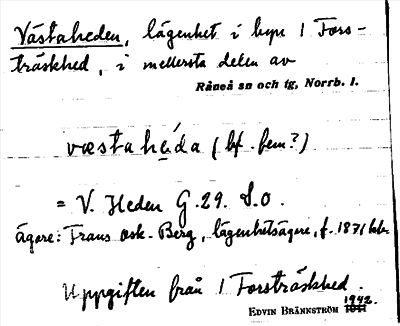 Västaheden, lägenhet i byn 1 Fors-
träskhed, i mellersta delen av
Råneå sn och tg, Norrb. l.
væstahéda (bf. fem?)
= V. Heden G.29. S.O.
ägare: Frans Osk. Berg, lägenhetsägare, f. 1871
Uppgiften från 1 Forsträskhed.
EDVIN BRÄNNSTRÖM 1942.